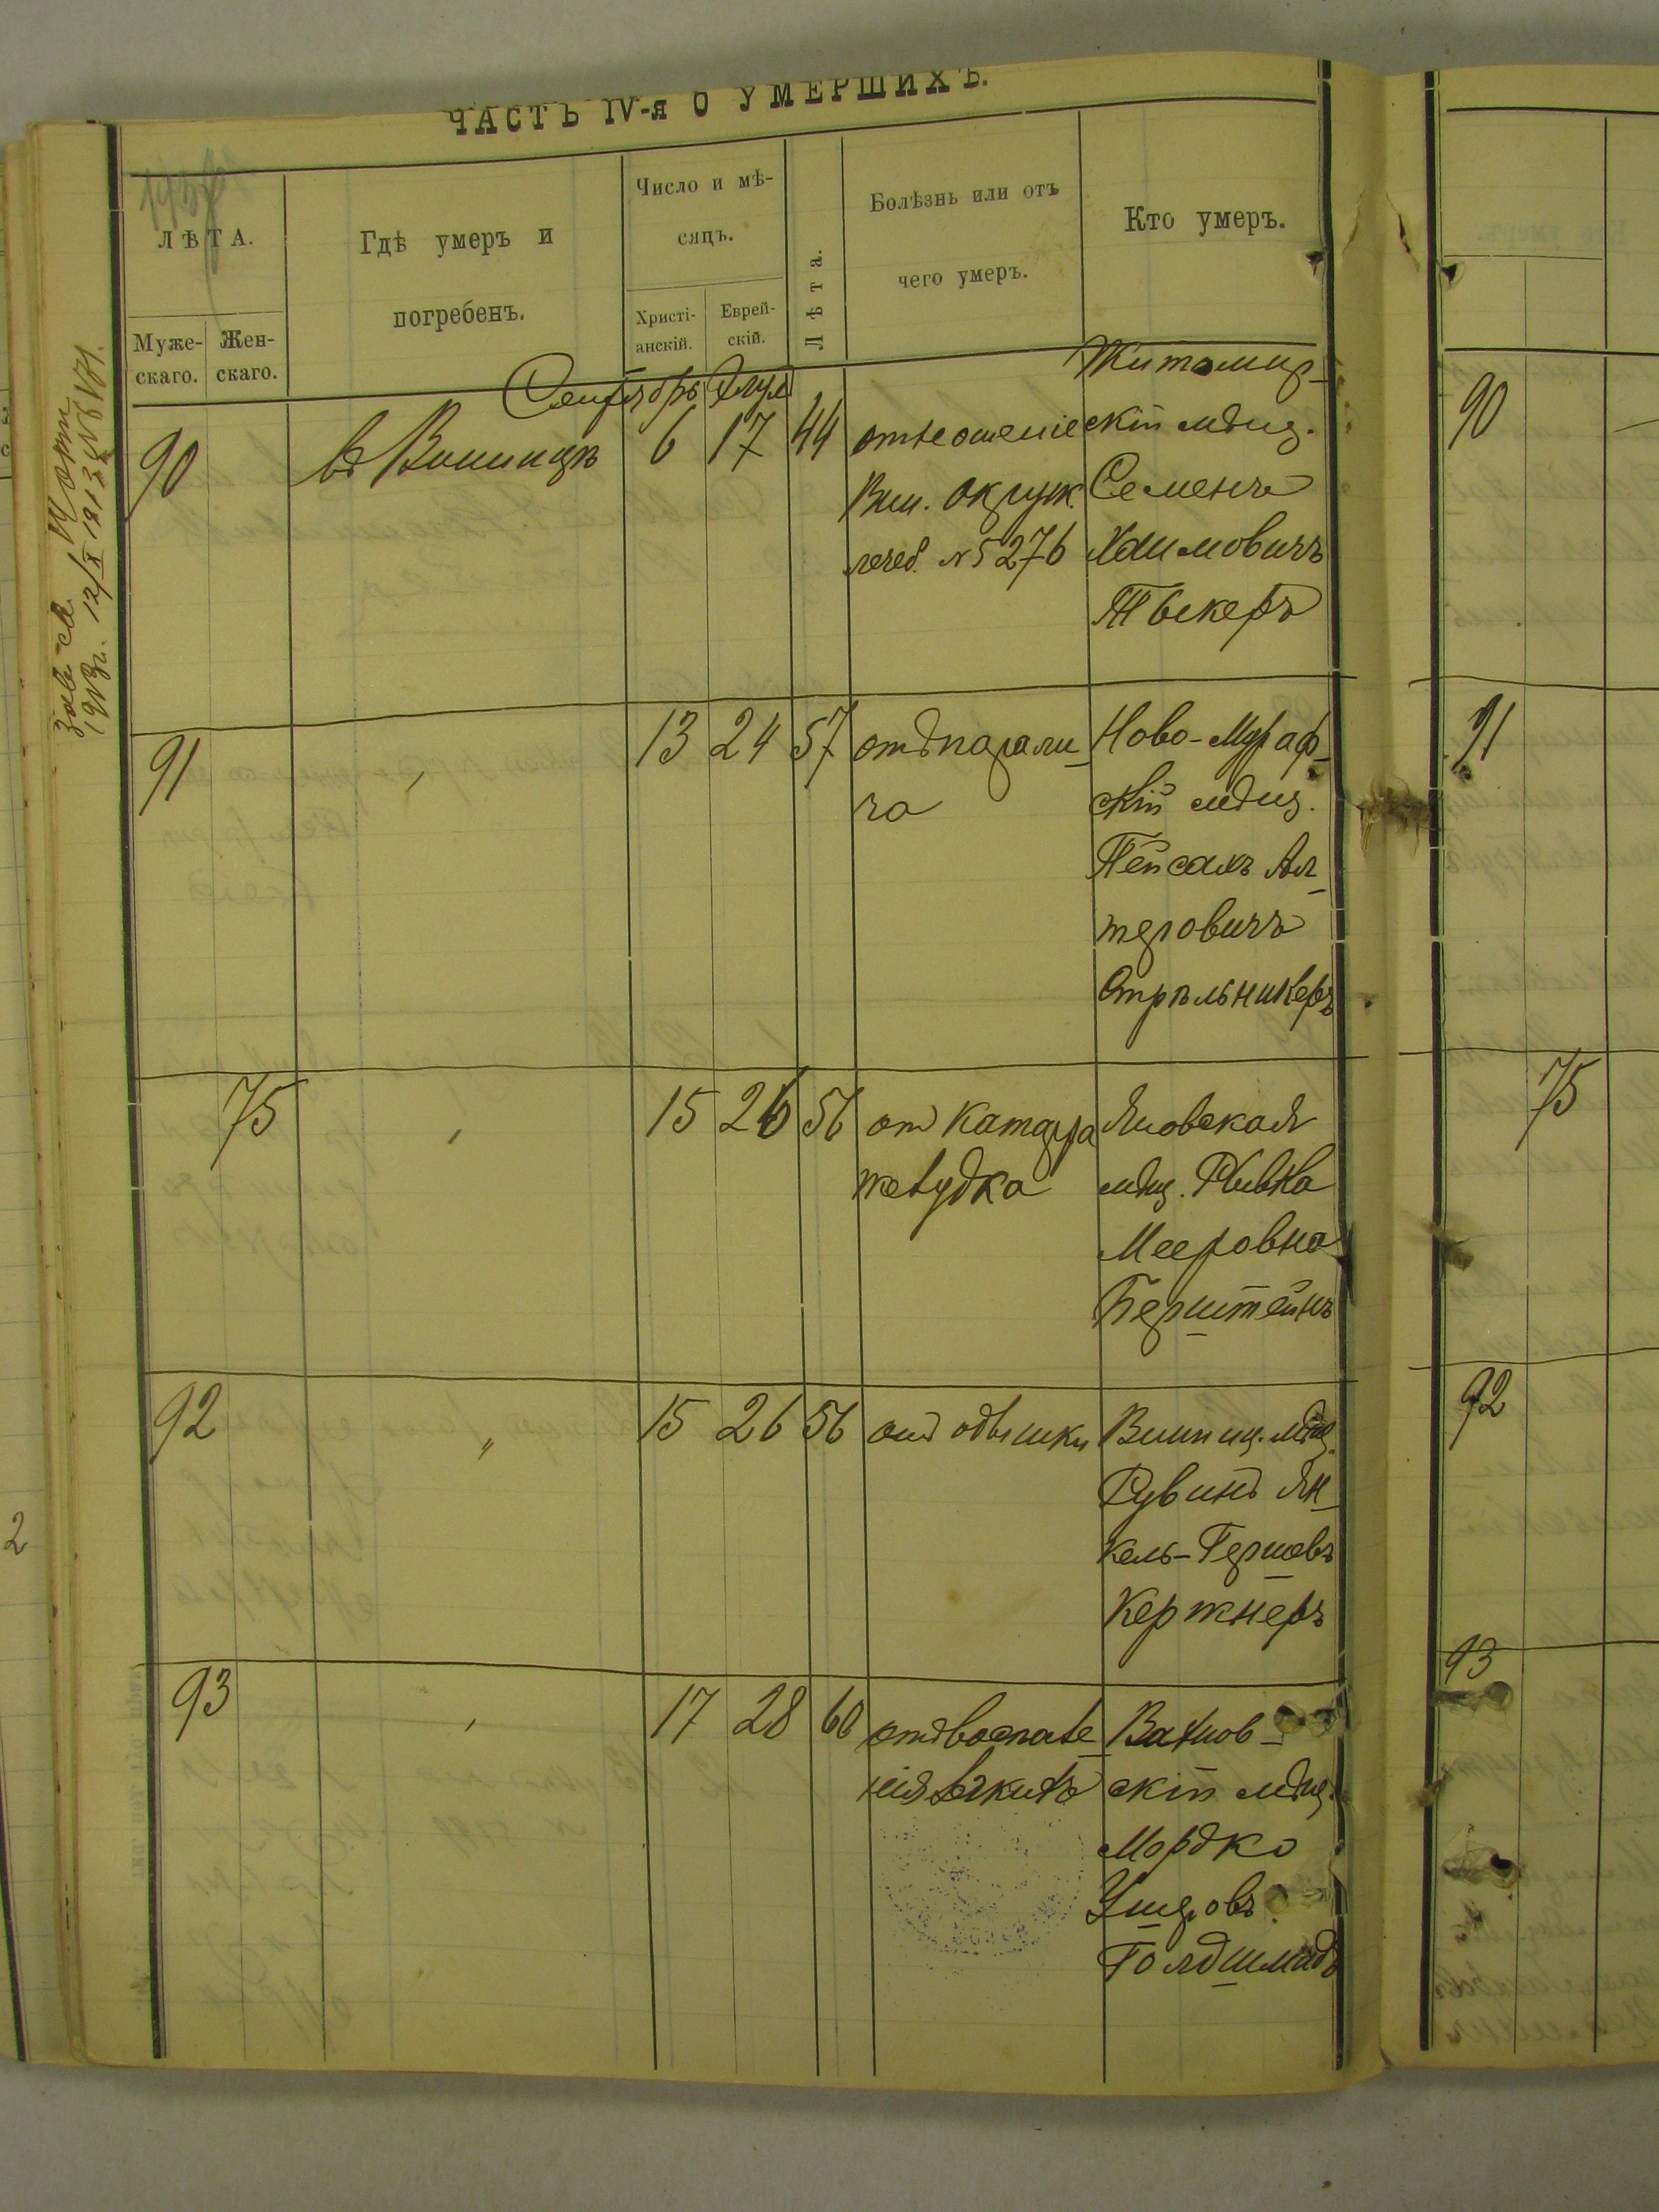 ЧАСТЬ IV-я О УМЕРШИХЪ.
ЛѢТА.
Муже-
скаго.
Жен-
скаго.
Гдѣ умеръ и
погребенъ.
Число и мѣ-
сяцъ.
Христі-
анскій.
Еврей-
скій.
Лѣта.
Болѣзнь или отъ
чего умеръ.
Кто умеръ.
Сентябрь Элул
90 въ Винницѣ 6 17 44
отношеніе
Вин. окруж.
лечеб. №5276
Житомир-
скій мѣщ.
Семенъ
Хаимовичъ
91 " 13 24 57
отъ парали-
ча
Ново-Мураф-
скій мѣщ.
Пейсахъ Ал-
теровичъ
Стрѣльникеръ
75 " 15 26 56
от катарра
желудка
Яновская
мѣщ. Рывка
Мееровна
Берштейнъ
92 " 15 26 56
отъ одышки
Винниц. мѣщ.
Рувинъ Ян-
кель-Гершовъ
Кержнеръ
93 " 17 28 60
отъ воспале-
нія
Вахнов-
скій мѣщ.
Мордко
Ушеровъ
Голдшмидъ
90
91
75
92
93
2